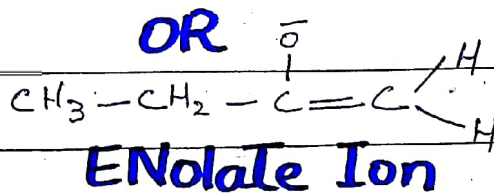 OR
CH₃ — CH₂ — C(–O⁻) = C(–H)(–H)
ENolate Ion